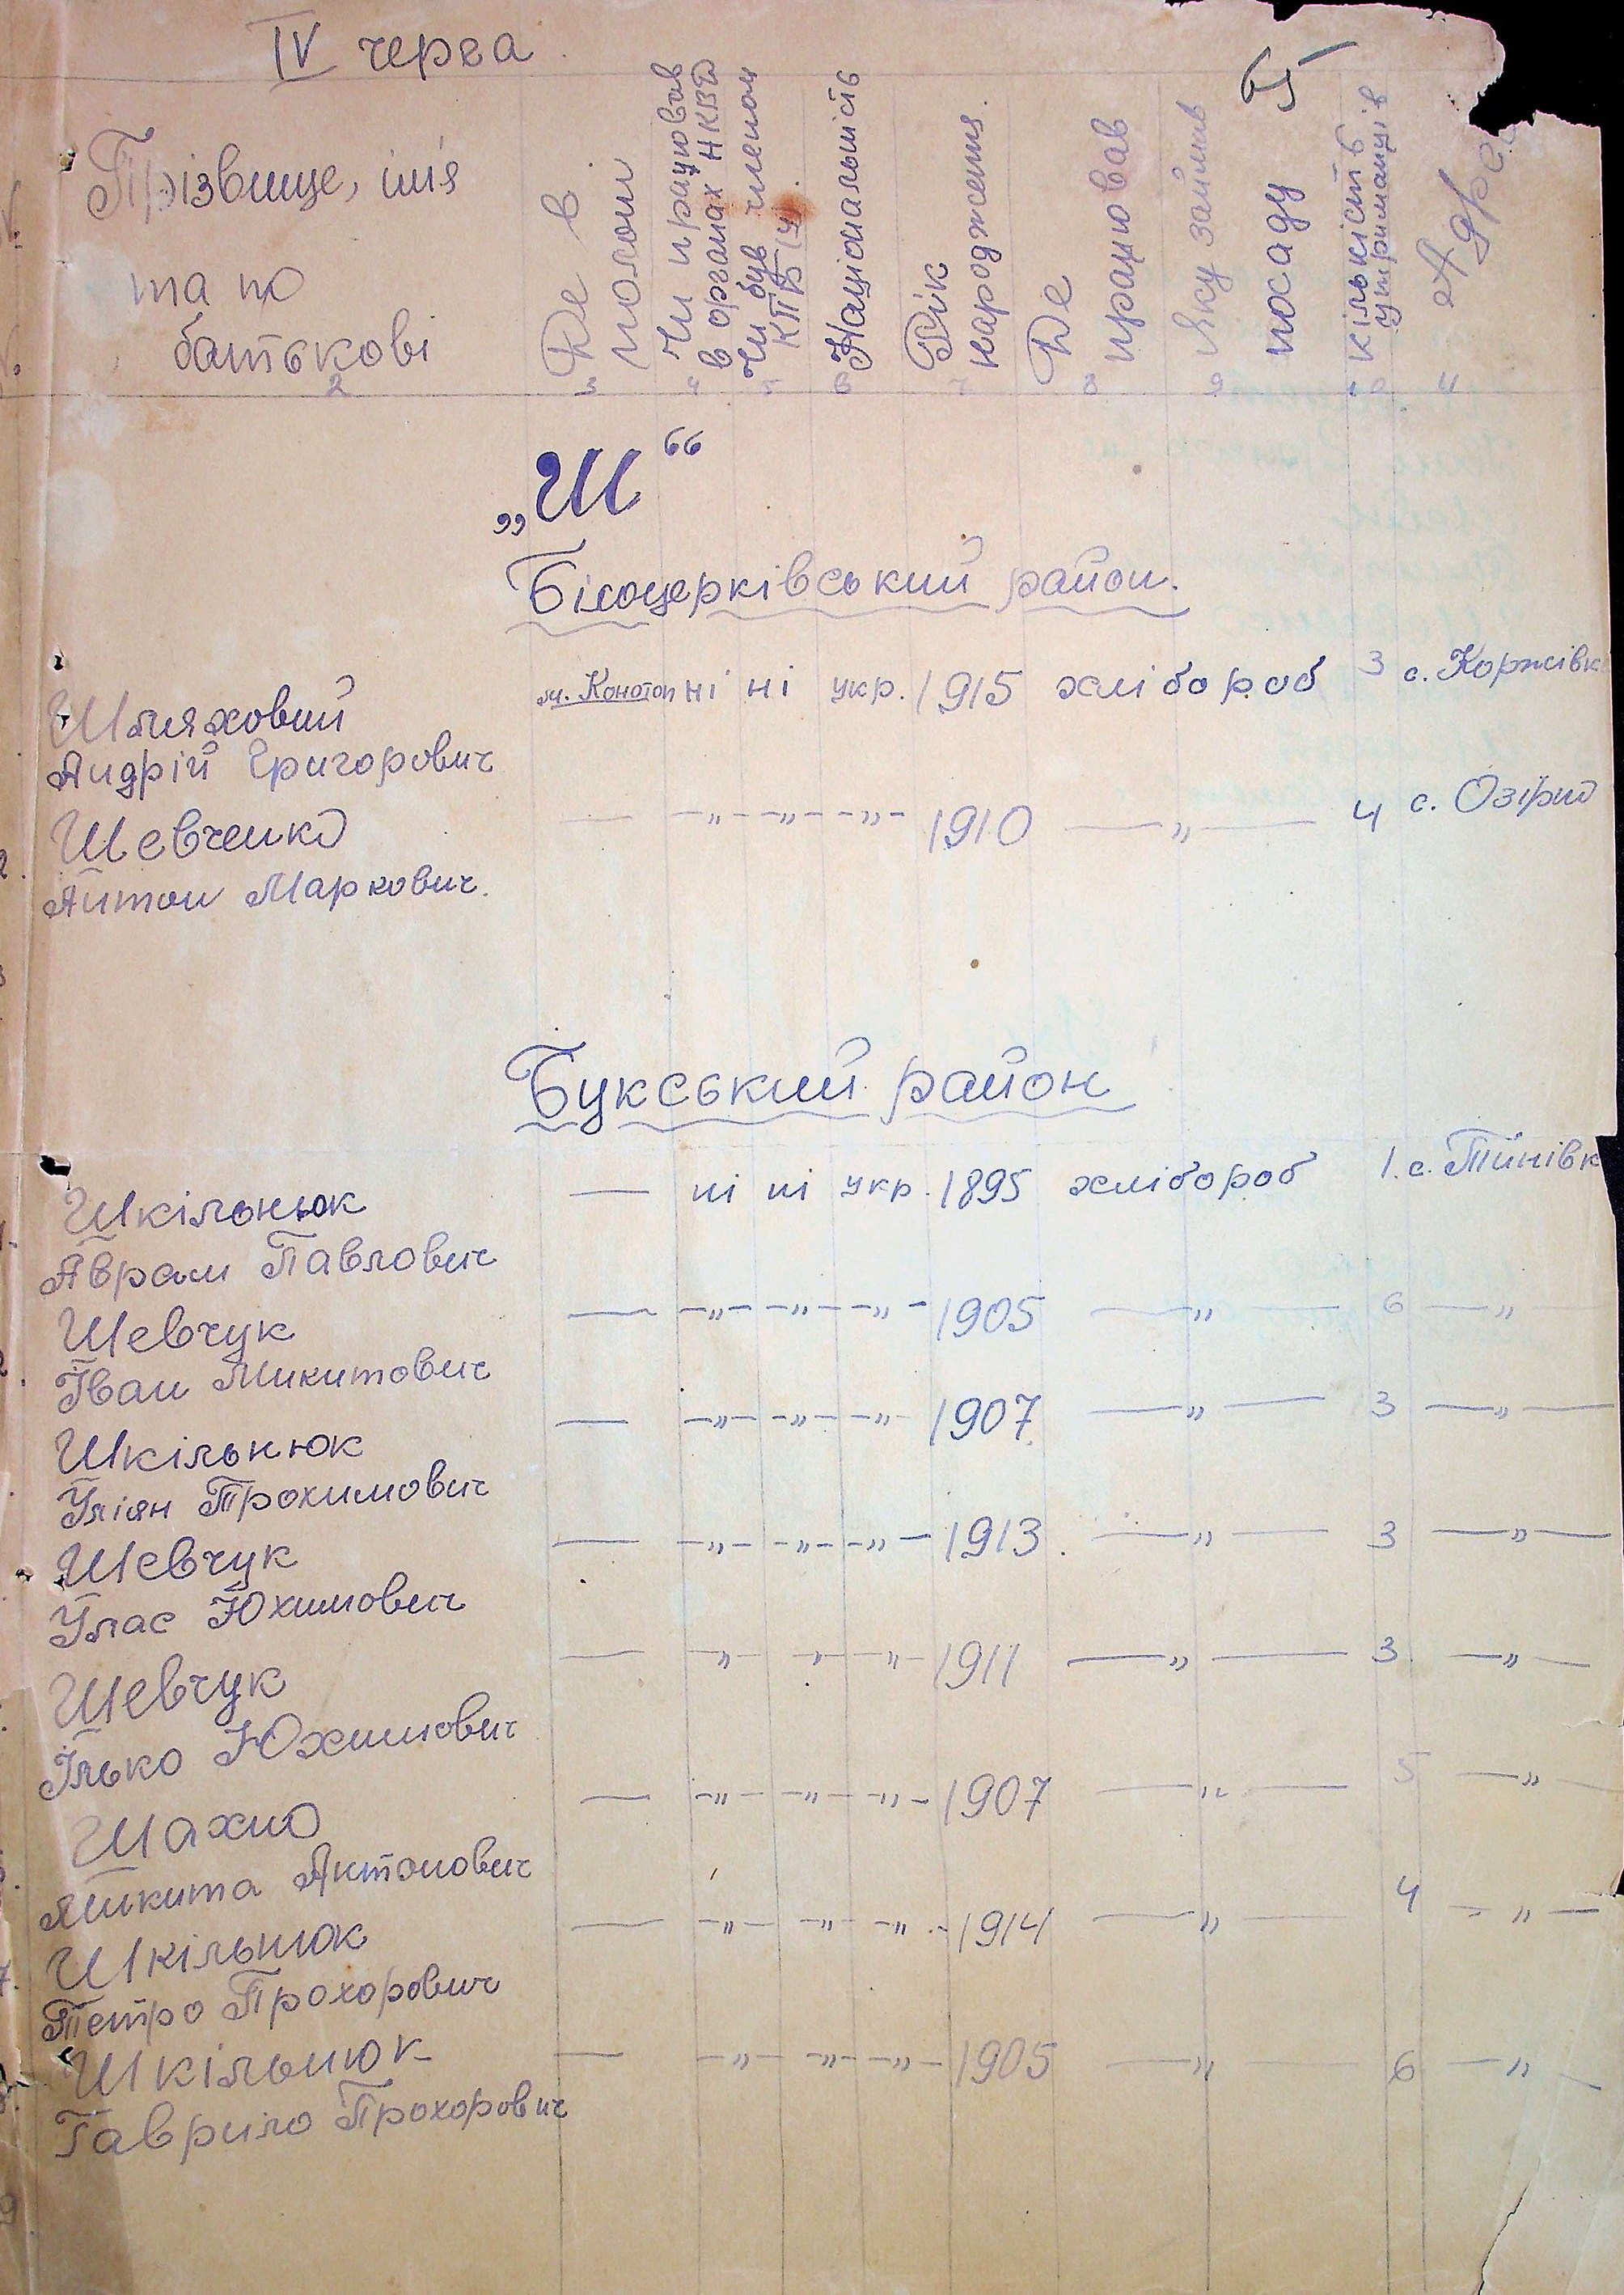 IV черга
65
Прізвище, імя
та по
батькові
Де в
полоні
Чи працював
в органах НКВД
Чи був членом
КПБ(у)
Національність
Рік
народження.
Де
працював
Яку займав
посаду
кількість
утриманців
Адреса
2 3 4 5 6 7 8 9 10 11
„Ш“
Білоцерківський район.
Шляховий м. Конотоп ні ні укр. 1915 хлібороб 3 с. Коржівк
Андрій Григорович
Шевченко — -„- -„- -„- 1910 —„— 4 с. Озірно
Антон Маркович.
Букський район
Шкільнюк — ні ні укр. 1895 хлібороб 1. с. Тинівк
Аврам Павлович
Шевчук — -„- -„- -„- 1905 —„— 6 —„—
Іван Микитович
Шкільнюк — -„- -„- -„- 1907 —„— 3 —„—
Уліян Прохимович
Шевчук — -„- -„- -„- 1913. —„— 3 —„—
Улас Юхимович
Шевчук — -„- -„- -„- 1911 —„— 3 —„—
Ілько Юхимович
Шахно — -„- -„- -„- 1907 —„— 5 —„—
Микита Антонович
Шкільнюк — -„- -„- -„- 1914 —„— 4 —„—
Петро Прохорович
Шкільнюк — -„- -„- -„- 1905 —„— 6 —„—
Гаврило Прохорович